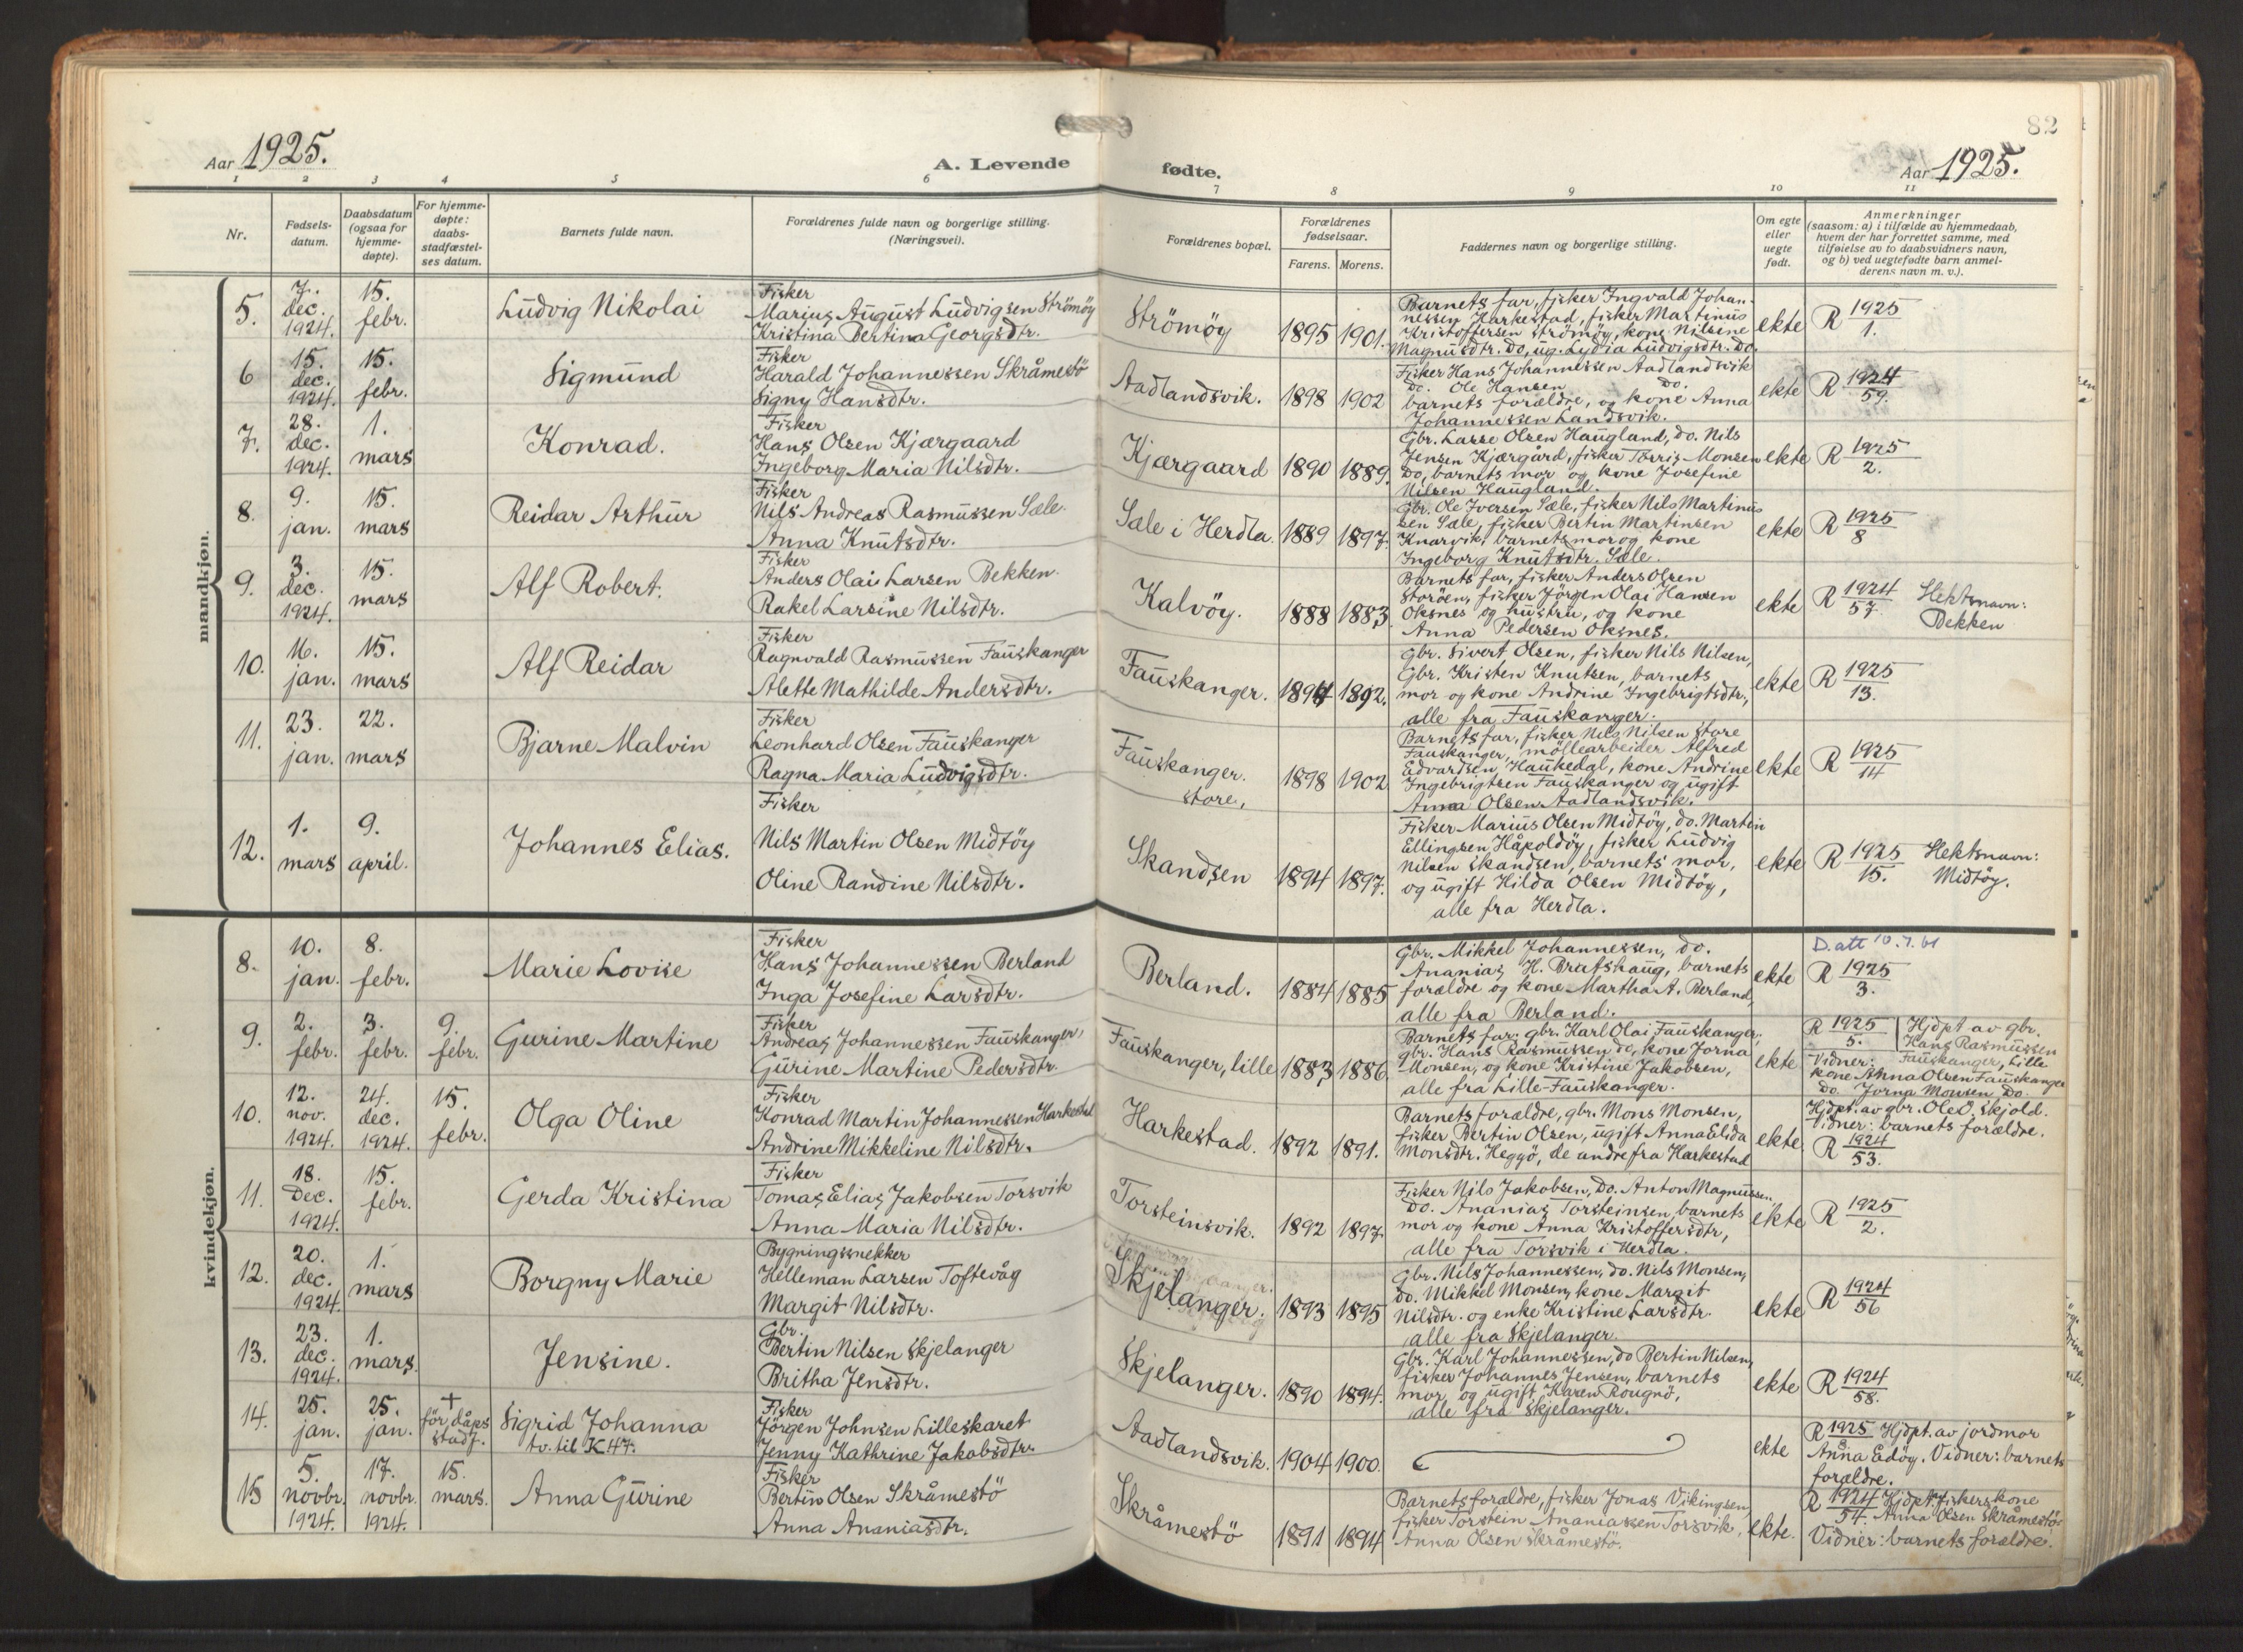 82
Aar 1925.
A. Levende fødte.
Aar 1925.
1 2 3 4 5 6 7 8 9 10 11
Nr.
Fødsels-
datum.
Daabsdatum
(ogsaa for
hjemme-
døpte).
For hjemme-
døpte:
daabs-
stadfæstel-
ses datum.
Barnets fulde navn.
Forældrenes fulde navn og borgerlige stilling.
(Næringsvei).
Forældrenes bopæl.
Forældrenes
fødselsaar.
Farens. Morens.
Faddernes navn og borgerlige stilling.
Om egte
eller
uegte
født.
Anmerkninger
(saasom: a) i tilfælde av hjemmedaab,
hvem der har forrettet samme, med
tilføielse av to daabsvidners navn,
og b) ved uegtefødte barn anmel-
derens navn m. v.).
mandkjøn.
5.
7.
dec.
1924.
15.
febr.
Ludvig Nikolai
Fisker
Marius August Ludvigsen Strömöy
Kristina Bertina Georgsdtr.
Strömöy
1895 1901.
Barnets far, fisker Ingvald Johan-
nessen Harkestad, fisker Martinus
Kristoffersen Strömöy, kone Nilsine
Magnusdtr. Do, ug. Lydia Ludvigsdtr. Do.
ekte
R 1925
1.
6
15.
dec.
1924.
15.
febr.
Sigmund
Fisker
Harald Johannessen Skråmestö
Signy Hansdtr.
Aadlandsvik.
1898 1902
Fisker Hans Johannessen Aadlandsvik
Do. Ole Hansen Do.
barnets forældre, og kone Anna
Johannessen Landsvik.
ekte
R 1924
59.
7.
28.
dec.
1924.
1.
mars
Konrad.
Fisker
Hans Olsen Kjærgaard
Ingeborg Maria Nilsdtr.
Kjærgaard
1890 1889.
Gbr. Lasse Olsen Haugland, do. Nils
Jensen Kjærgård, fisker Torris Monsen
Do, barnets mor og kone Josefine
Nilsen Haugland.
ekte
R 1925
2.
8.
9.
jan.
15.
mars
Reidar Arthur
Fisker
Nils Andreas Rasmussen Sæle.
Anna Knutsdtr.
Sæle i Herdla.
1889 1897.
Gbr. Ole Iversen Sæle, fisker Nils Martinus
sen Sæle, fisker Bertin Martinsen
Knarvik, barnets mor og kone
Ingeborg Knutsdtr. Sæle.
ekte
R 1925
8
9.
3.
dec.
1924.
15.
mars
Alf Robert.
Fisker
Anders Olai Larsen Bekken.
Rakel Larsine Nilsdtr.
Kalvöy.
1888 1883
Barnets far, fisker Anders Olsen
Storöen, fisker Jörgen Olai Hansen
Oksnes og hustru, og kone
Anna Pedersen Oksnes.
ekte
R 1924
57.
Slektsnavn:
Bekken
10.
16.
jan.
15.
mars
Alf Reidar
Fisker
Ragnvald Rasmussen Fauskanger
Alette Mathilde Andersdtr.
Fauskanger.
1894 1892.
Gbr. Sivert Olsen, fisker Nils Nilsen,
Gbr. Kristen Knutsen, barnets
mor og kone Andrine Ingebrigtsdtr.,
alle fra Fauskanger.
ekte
R 1925
13.
11.
23.
jan.
22.
mars
Bjarne Malvin
Fisker
Leonhard Olsen Fauskanger
Ragna Maria Ludvigsdtr.
Fauskanger.
store,
1898 1902
Barnets far, fisker Nils Nilsen Store
Fauskanger, möllearbeider Alfred
Edvardsen Haukedal, kone Andrine
Ingebrigtsen Fauskanger og ugift
Anna Olsen Aadlandsvik.
ekte
R 1925
14
12.
1.
mars
9.
april.
Johannes Elias.
Fisker
Nils Martin Olsen Midtöy
Oline Randine Nilsdtr.
Skandsen
1894 1897.
Fisker Marius Olsen Midtöy, do. Martin
Ellingsen Håpoldöy, fisker Ludvig
Nilsen Skandsen, barnets mor,
og ugift Hilda Olsen Midtöy,
alle fra Herdla.
ekte
R 1925
15.
Slektsnavn:
Midtöy.
kvindekjøn.
8.
10.
jan.
8.
febr.
Marie Lovise
Fisker
Hans Johannessen Berland
Inga Josefine Larsdtr.
Berland.
1884 1885
Gbr. Mikkel Johannessen, do.
Ananias H. Bratshaug, barnets
forældre og kone Martha A. Berland,
alle fra Berland.
ekte
D. att 10.7.61
R 1925
3.
9.
2.
febr.
3.
febr.
9.
febr.
Gurine Martine
Fisker
Andreas Johannessen Fauskanger,
Gurine Martine Pedersdtr.
Fauskanger, lille
1883 1886.
Barnets far, gbr. Karl Olai Fauskanger,
gbr. Hans Rasmussen do, kone Jorna
Monsen, og kone Kristine Jakobsen,
alle fra Lille-Fauskanger.
ekte
R 1925
5.
Hjdpt av gbr.
Hans Rasmussen
Fauskanger, Lille
Vidner:
kone Anna Olsen Fauskanger
Do. Jorna Monsen Do.
10.
12.
nov.
1924.
24.
dec.
1924.
15.
febr.
Olga Oline
Fisker
Konrad Martin Johannessen Harkestad
Andrine Mikkeline Nilsdtr.
Harkestad.
1892 1891.
Barnets forældre, gbr. Mons Monsen,
fisker Bertin Olsen, ugift Anna Elida
Monsdtr. Heggö, de andre fra Harkestad
ekte
Hjdpt. av gbr. Ole O. Skjold.
Vidner: barnets forældre.
R 1924
53.
11.
18.
Dec.
1924.
15.
febr.
Gerda Kristina
Fisker
Tomas Elias Jakobsen Torsvik
Anna Maria Nilsdtr.
Torsteinsvik.
1892 1897
Fisker Nils Jakobsen, Do. Anton Magnussen,
Do. Ananias Torsteinsen, barnets
mor og kone Anna Kristoffersdtr,
alle fra Torsvik i Herdla.
ekte
R 1925
2.
12.
20.
dec.
1924.
1.
mars
Borgny Marie
Bygningssnekker
Helleman Larsen Toftevåg
Margit Nilsdtr.
Skjelanger.
1893 1895
Gbr. Nils Johannessen, do. Nils Monsen,
Do. Mikkel Monsen, kone Margit
Nilsdtr. og enke Kristine Larsdtr.
alle fra Skjelanger.
ekte
R 1924
56
13.
23.
dec.
1924.
1.
mars.
Jensine.
Gbr.
Bertin Nilsen Skjelanger
Britha Jensdtr.
Skjelanger.
1890 1894.
Gbr. Karl Johannessen, do Bertin Nilsen,
fisker Johannes Jensen, barnets
mor, og ugift Karen Rougnö,
alle fra Skjelanger.
ekte
R 1924
58.
14.
25.
jan.
25.
jan.
+
för dåps
stadf.
Sigrid Johanna
tv. til K 47.
Fisker
Jörgen Johnsen Lilleskaret
Jenny Kathrine Jakobsdtr.
Aadlandsvik.
1904 1900.
ekte
R 1925 Hjdpt. av jordmor
Anna Edöy. Vidner: barnets
forældre.
15
5.
novbr.
1924.
17.
novbr.
1924.
15.
mars.
Anna Gurine
Fisker
Bertin Olsen Skråmestö
Anna Ananiasdtr.
Skråmestö
1891 1894
Barnets forældre, fisker Jonas Vikingsen,
fisker Torstein Ananiassen Torsvik,
Anna Olsen Skråmestö.
ekte.
R 1924 Hjdpt. fiskerskone
54. Anna Olsen Skråmestö
Vidner: barnets forældre.